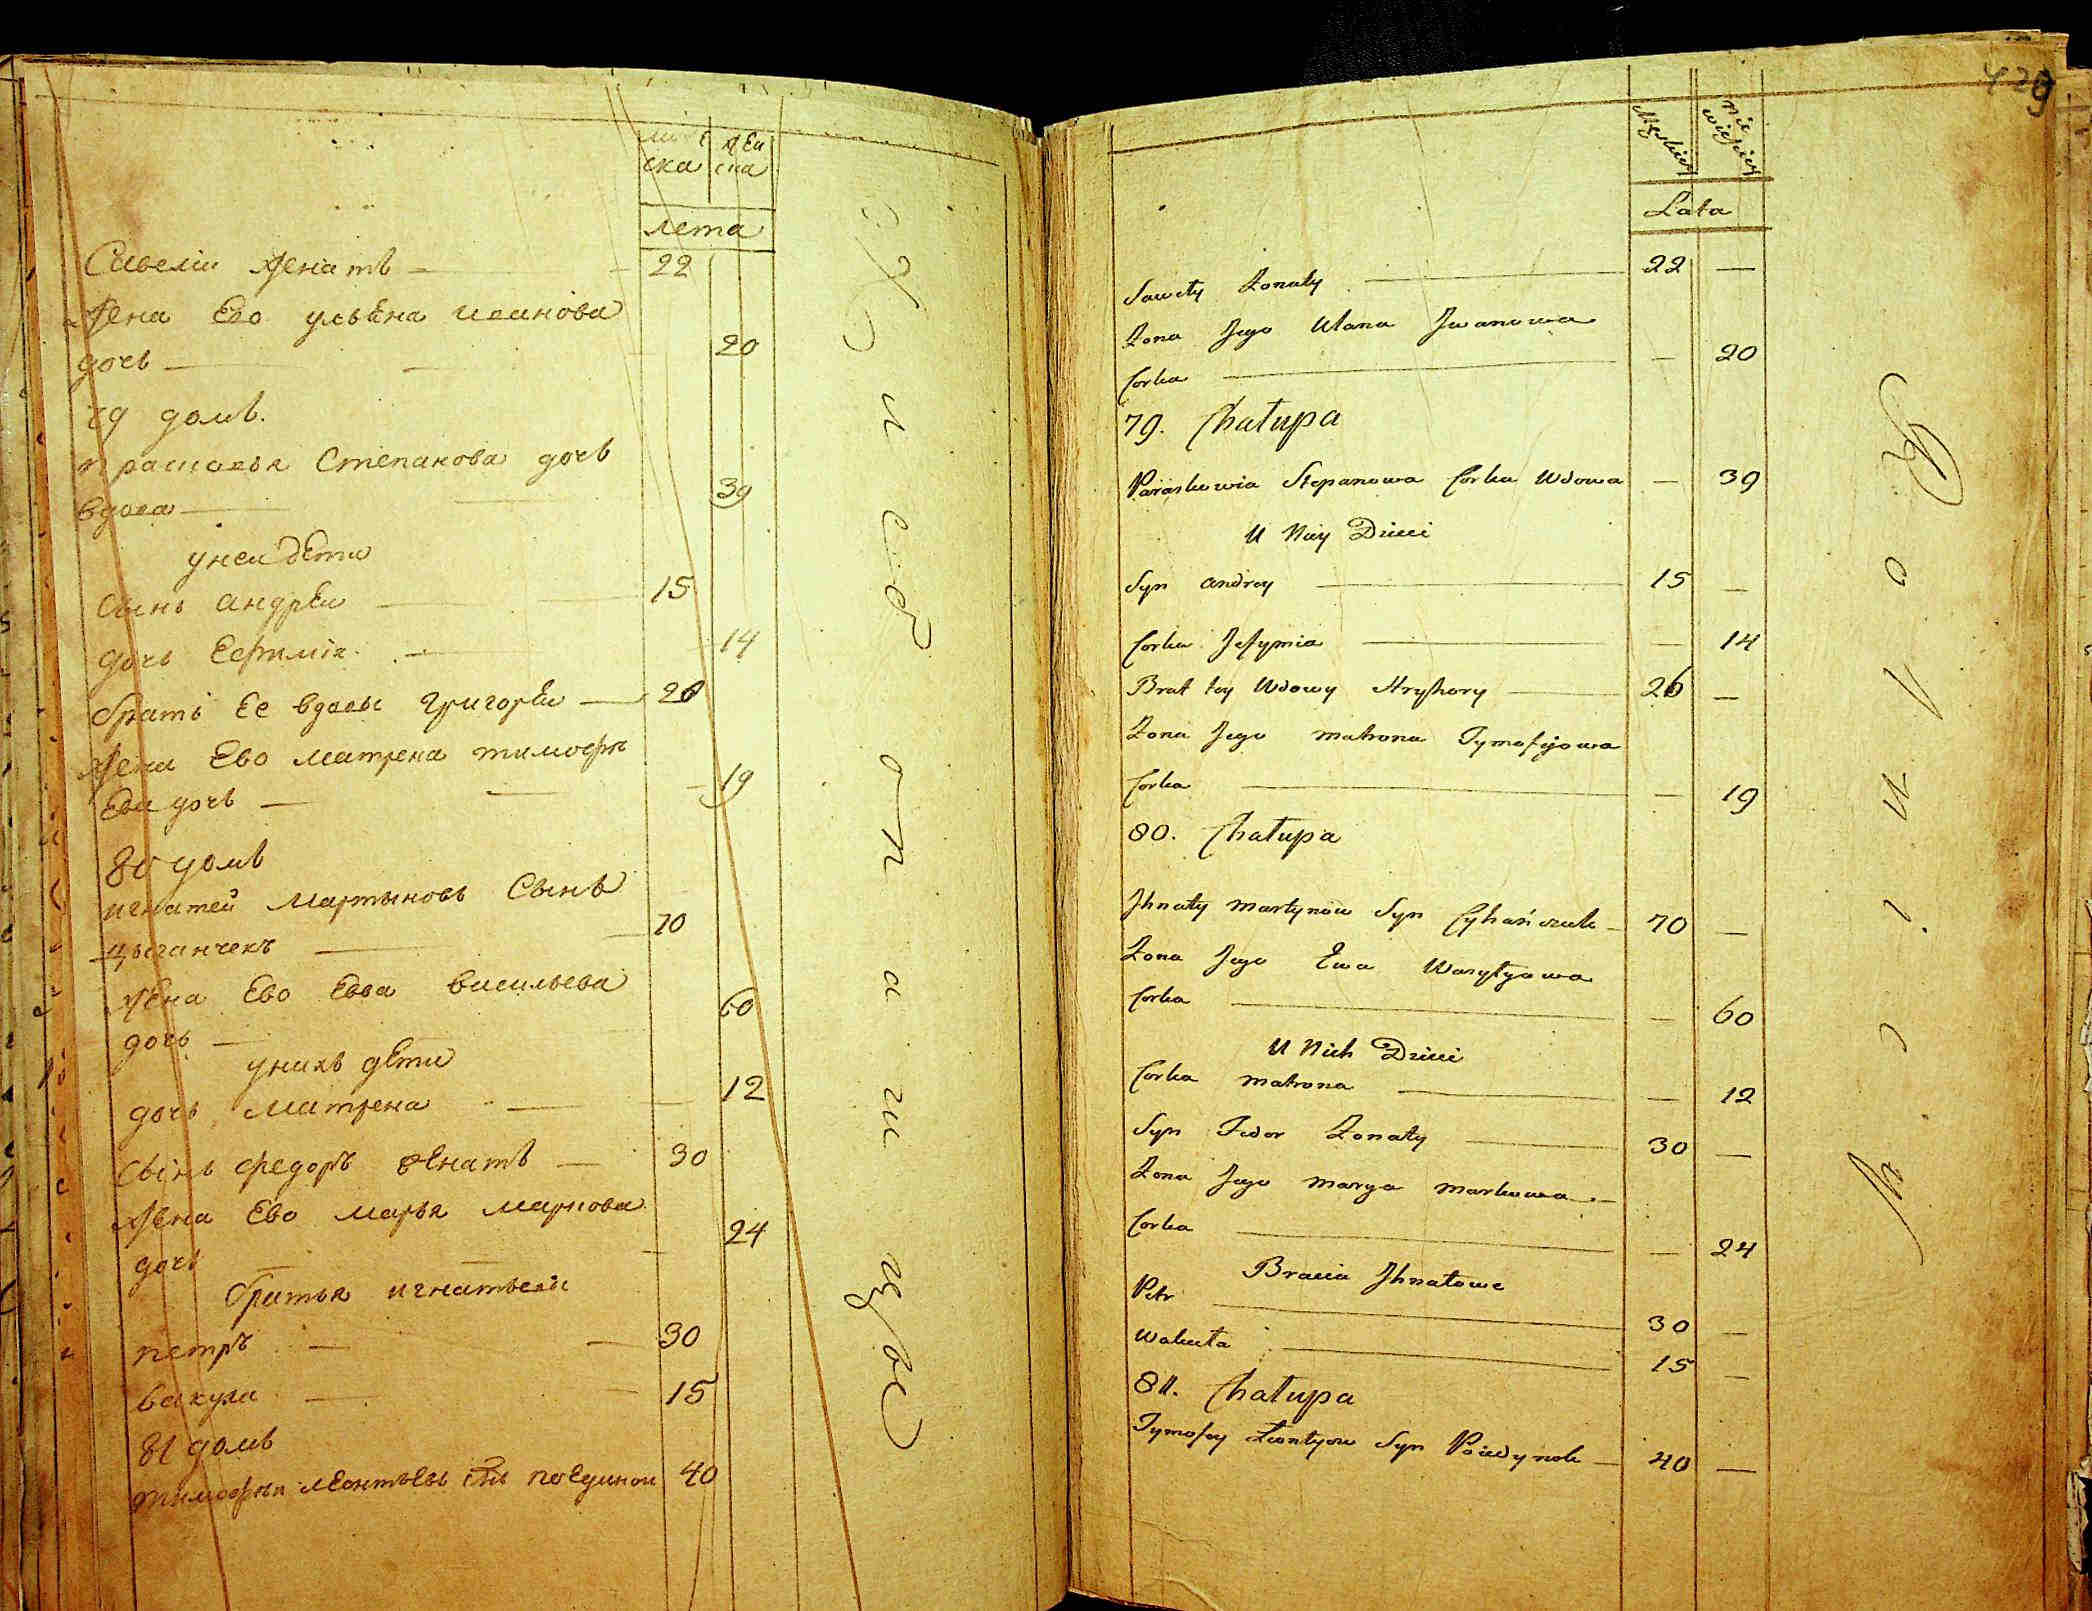 ска ска
лета
Савелии женатъ — 22
жена Ево ульяна иванова
дочь — 20
79 домъ.
прасковья Степанова дочь
вдова — 39
унеи дети
Сынъ андреи — 15
дочь Ефимия — 14
братъ Ее вдовы григореи — 26
жена Ево матрена тимофе
Ева дочь — 19
80 домъ
игнатей мартыновъ Сынъ
цыганчекъ — 70
жена Ево Евва васильева
дочь — 60
унихъ дети
дочь матрена — 12
Сынъ федоръ женатъ — 30
жена Ево марья маркова
дочь — 24
братья игнатьевы
петръ — 30
вакула — 15
81 домъ
тимофеи леонтьевъ снъ поединок 40
429
Męskiey nie wieściey
Lata
Sawety Zonaty — 22 —
Zona Jego Ulana Jwanowa
Corka — — 20
79. Chałupa
Paraskowia Stepanowa Corka Wdowa — 39
U Niey Dzieci
Syn andrey — 15 —
Corka Jefymia — — 14
Brat tey Wdowy Hryhory — 26 —
Zona Jego matrona Tymofijowa
Corka — — 19
80. Chałupa
Jhnaty martynow Syn Cyhańczuk — 70 —
Zona Jego Ewa Wasylyowa
Corka — — 60
U Nich Dzieci
Corka matrona — — 12
Syn Fedor Zonaty — 30 —
Zona Jego marya markowa —
Corka — — 24
Bracia Jhnatowe
Petr — 30 —
Wakuła — 15 —
81. Chałupa
Tymofey Leontyow Syn Poiedynok — 40 —